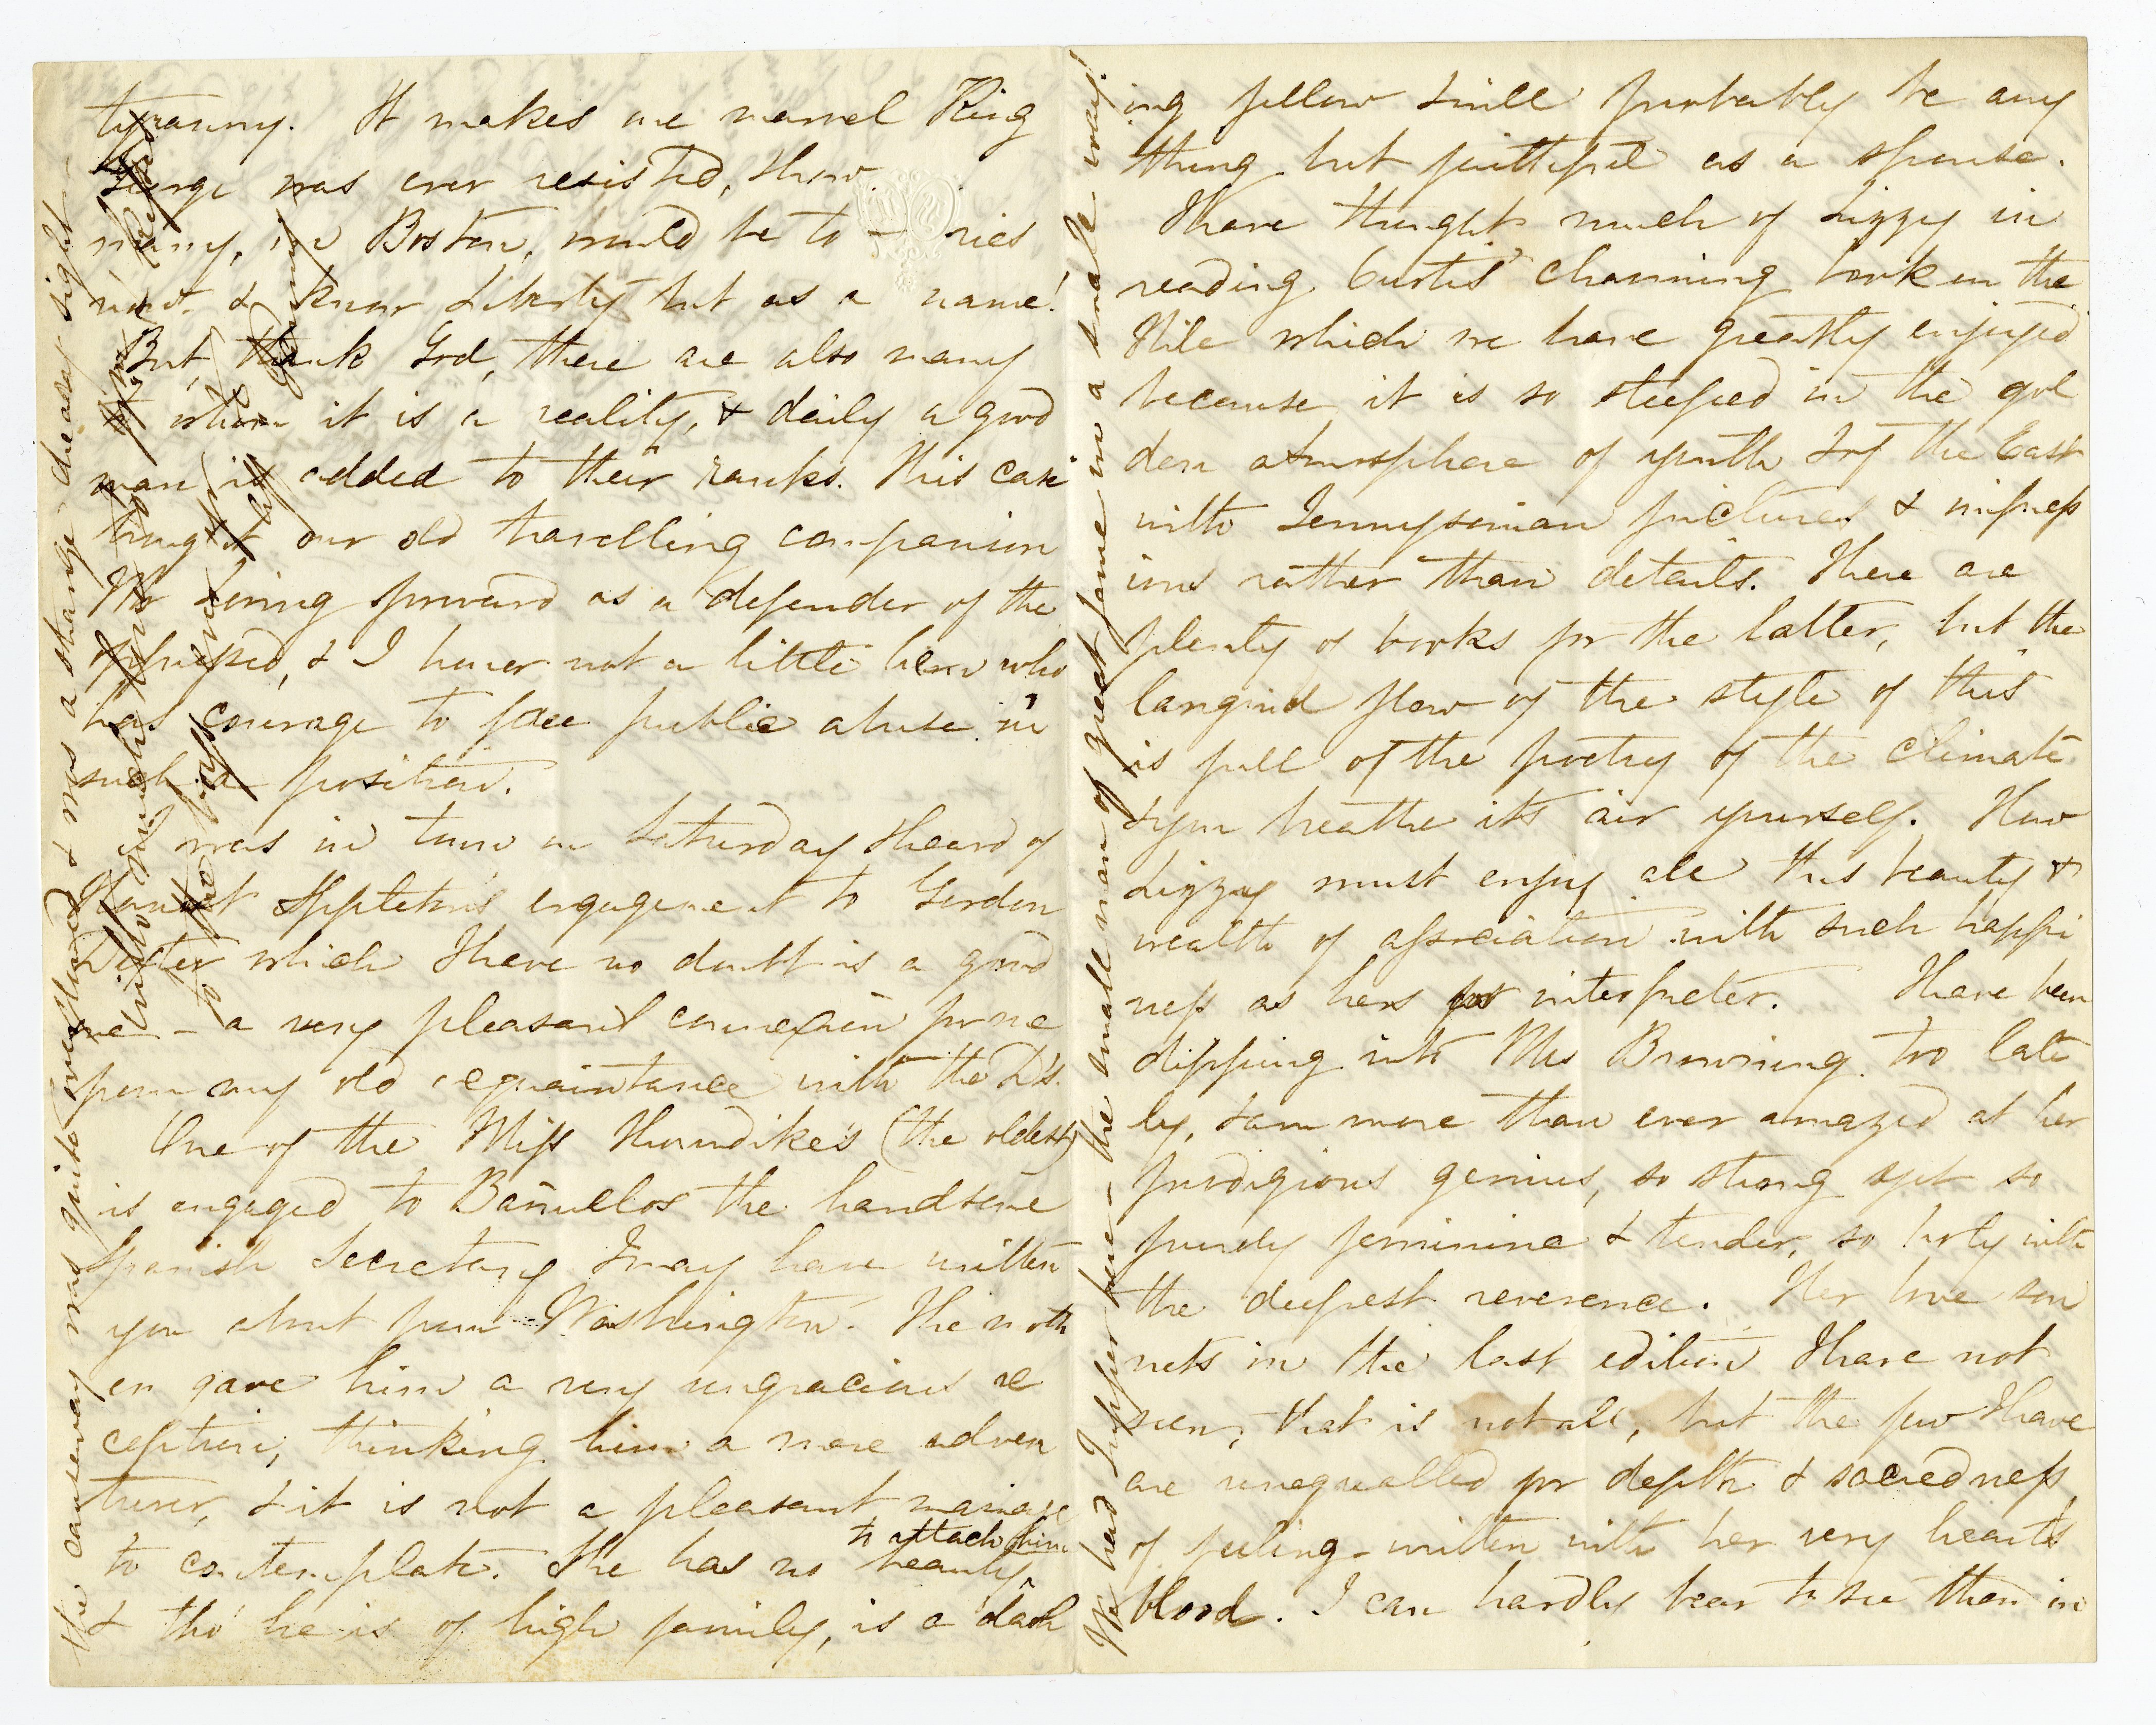 tyranny. It makes me marvel King
George was ever resisted, & how
many, in Boston, would be to – ries
now & know Liberty but as a name!
But, thank God, there are also many
to whom it is a reality, & daily a good
man is added to their ranks. This case
brought our old travelling companion
Mr Loring forward as a defender of the
oppressed, & I honor not a little him who
has courage to face public abuse in
such a position.
I was in town on Saturday & heard of
Harriet Appleton's engagement to Gordon
Dexter which I have no doubt is a good
one – a very pleasant connexion for me
from my old acquaintance with the D's.
One of the Miss Thorndike's (the oldest)
is engaged to Bañuelos the handsome
Spanish Secretary I may have written
you about from Washington. The moth
er gave him a very ungracious re
ception, thinking him a mere adven
turer, & it is not a pleasant marriage
to contemplate. She has no beauty to attach him
& tho' he is of high family, is a dash
ing fellow & will probably be any
thing but faithful as a spouse.
I have thought much of Lizzy in
reading Curtis' charming book on the
Nile which we have greatly enjoyed
because it is so steeped in the gol
den atmosphere of youth & of the East
with Tennysonian pictures & impress
ions rather than details. There are
plenty of books for the latter, but the
languid flow of the style of this
is full of the poetry of the climate
& you breathe its air yourself. How
Lizzy must enjoy all this beauty &
wealth of association with such happi
ness as hers for interpreter. I have been
dipping into Mrs Browning too late
ly, & am more than ever amazed at her
prodigious genius, so strong & yet so
purely feminine & tender, so holy with
the deepest reverence. Her love son
nets in the last edition I have not
seen, that is not all, but the few I have
are unequalled for depth & sacredness
of feeling – written with her very heart's
blood. I can hardly bear to see them in
the causeway was quite overflowed & was a strange dreary sight
We had Tupper here – the small man of great fame in a small way!